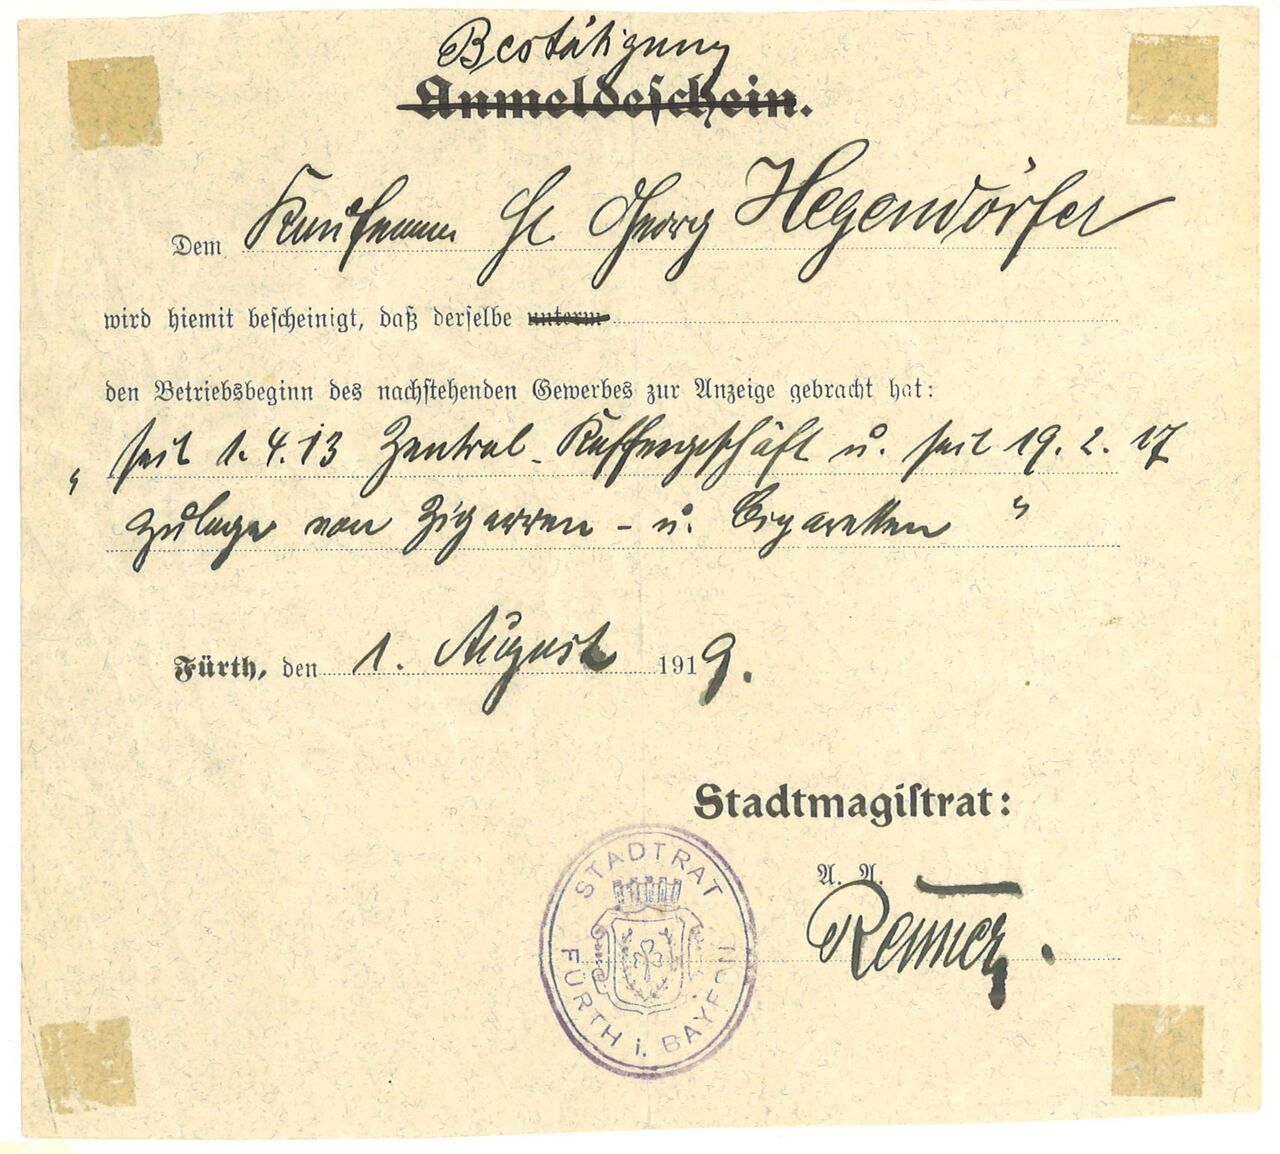 Bestätigung
Anmeldeschein.
Dem Kaufmann H. Georg Hegendörfer
wird hiemit bescheinigt, daß derselbe unterm
den Betriebsbeginn des nachstehenden Gewerbes zur Anzeige gebracht hat:
„ seit 1.4.13 Zentral-Kaffeegeschäft u. seit 19. 2. 17
Zulage von Zigarren- u. Cigaretten "
Fürth, den 1. August 1919.
Stadtmagistrat:
A. A.
STADTRAT
FÜRTH i. BAYERN